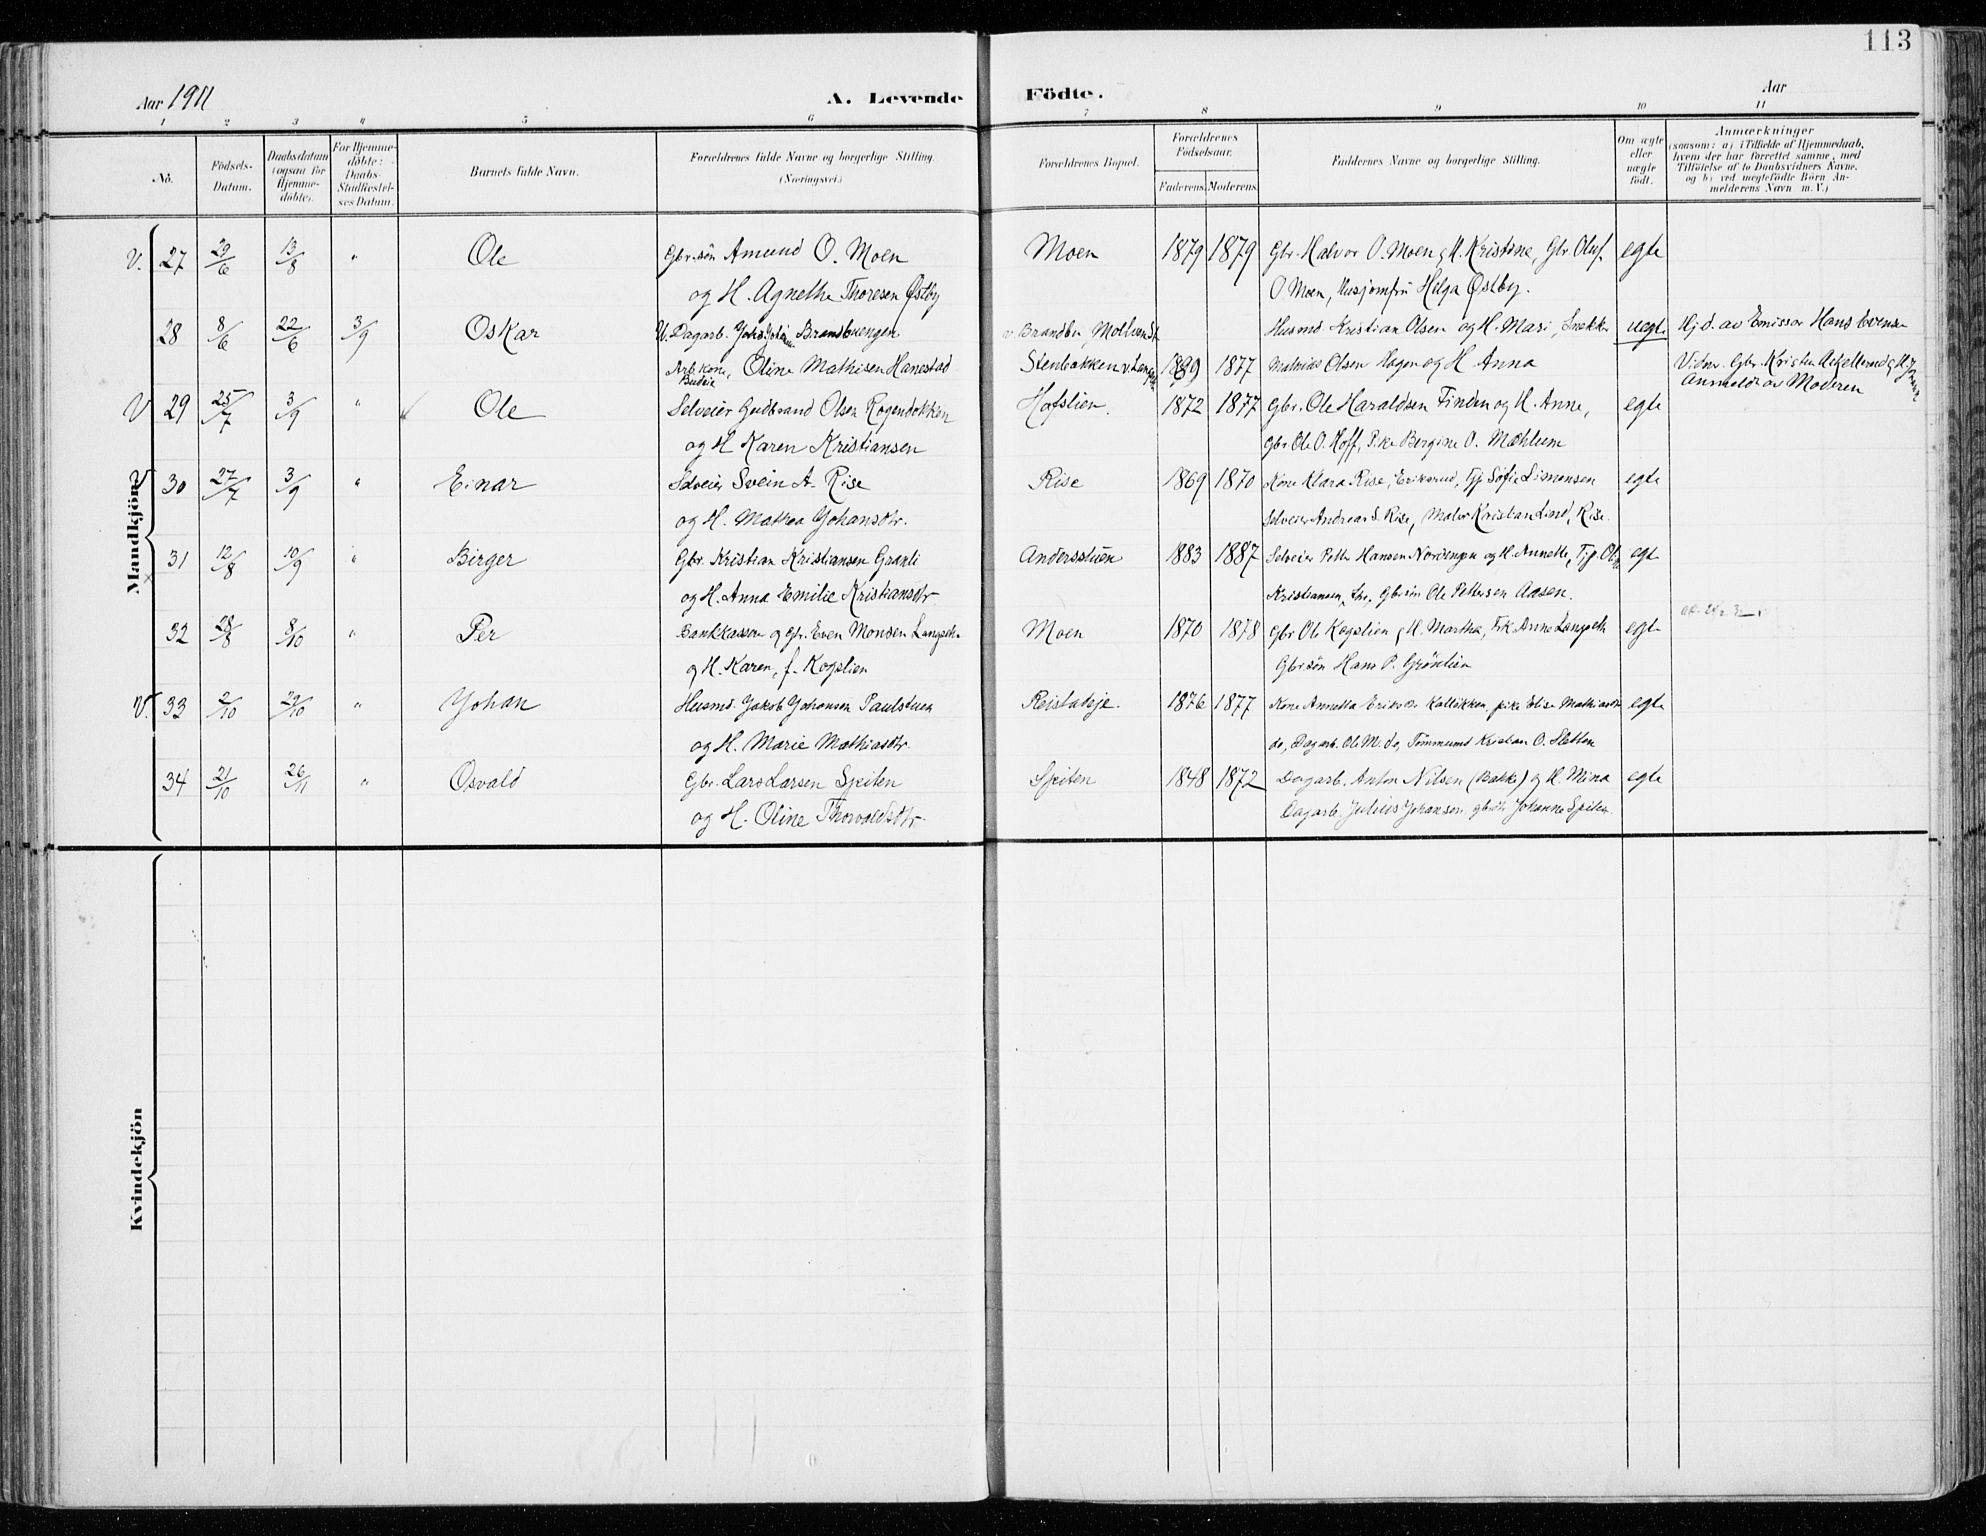 113
Aar 1911
A. Levende Födte.
Aar
1 2 3 4 5 6 7 8 9 10 11
No.
Födsels-Datum.
Daabsdatum (ogsaa for Hjemme-döbte).
For Hjemme-döbte: Daabs-Stadfæstel-ses Datum.
Barnets fulde Navn.
Forældrenes fulde Navne og borgerlige Stilling. (Næringsvei.)
Forældrenes Bopæl.
Forældrenes Födselsaar.
Faderens. Moderens.
Faddernes Navne og borgerlige Stilling.
Om ægte eller uægte födt.
Anmærkninger
(saasom: a) i Tilfælde af Hjemmedaab, hvem der har forrettet samme, med Tilföielse af to Daabsvidners Navne, og b) ved uægtefödte Börn An-melderens Navn m. V.)
Mandkjön
V. 27 29/6 13/8 " Ole Gbr.sön Amund O. Moen Moen 1879 1879 Gbr. Halvor O. Moen & H. Kristine, Gbr. Oluf egte
og H. Agnethe Thoresen Østby O Moen, Husjomfru Helga Østby.
28 8/6 22/6 3/9 Oskar U. Dagarb. Brandbuengen v. Brandbu Husmd. Kristian Olsen og H. Mari, Snekker uegte Hj.d. av Emissær Hans Evensen
Arb.kone, Budeie Oline Mathisen Hanestad Stenbakken 1877 Mathias Olsen Hagen og H Anna Vidner Gbr. Kristen
Anmeldt av Moderen
V 29 25/7 3/9 " Ole Selveier Gudbrand Olsen Rogendokken Hofslien. 1872 1877 Gbr. Ole Haraldsen Finden og H. Anne, egte
og H Karen Kristiansen Gbr Ole O. Hoff, Pike Bergine O. Mæhlum
V 30 27/7 3/9 " Einar Selveier Svein A. Rise Rise 1869 1870 Kone Klara Rise, Eriksrud, Tj. Sofie Simensen egte
og H. Mathea Johansdtr. Selveier Andreas S. Rise, Maler Kristian Lind, Rise.
31 12/8 10/9 " Birger Gbr. Kristian Kristiansen Granli Andersstuen 1883 1887 Selveier Petter Hansen Nordengen og H. Annette, Tj. egte
og H. Anna Emilie Kristiansdtr Kristiansen, Gbrsön Ole Pettersen Aasen.
32 28/8 8/10 " Per Bankkasserer og Gbr. Even Monsen Langseth Moen 1870 1878 Gbr Ole Kogslien & H. Martha, Frk Anne Langseth egte
og H. Karen, f. Kogslien Gbrsön Hans P. Grönlien
V. 33 2/10 29/10 " Johan Husmd. Jakob Johansen Paulstuen Reistadeje. 1876 1877 Kone Annetta Eriksdtr Kallökken, pike Elise Mathiasdtr egte
og H. Marie Mathiasdtr. do, Dagarb. Ole M. do, Tømmermd Kristian O. Sletten
34 21/10 26/11 " Osvald Gbr. Lars Larsen Speiten Speiten 1848 1872 Dagarb. Anton Nilsen (Bakke) og H. Mina egte
og H. Oline Thorvaldsdtr. Dagarb. Julius Johansen, Johanne Speiten.
Kvindekjön